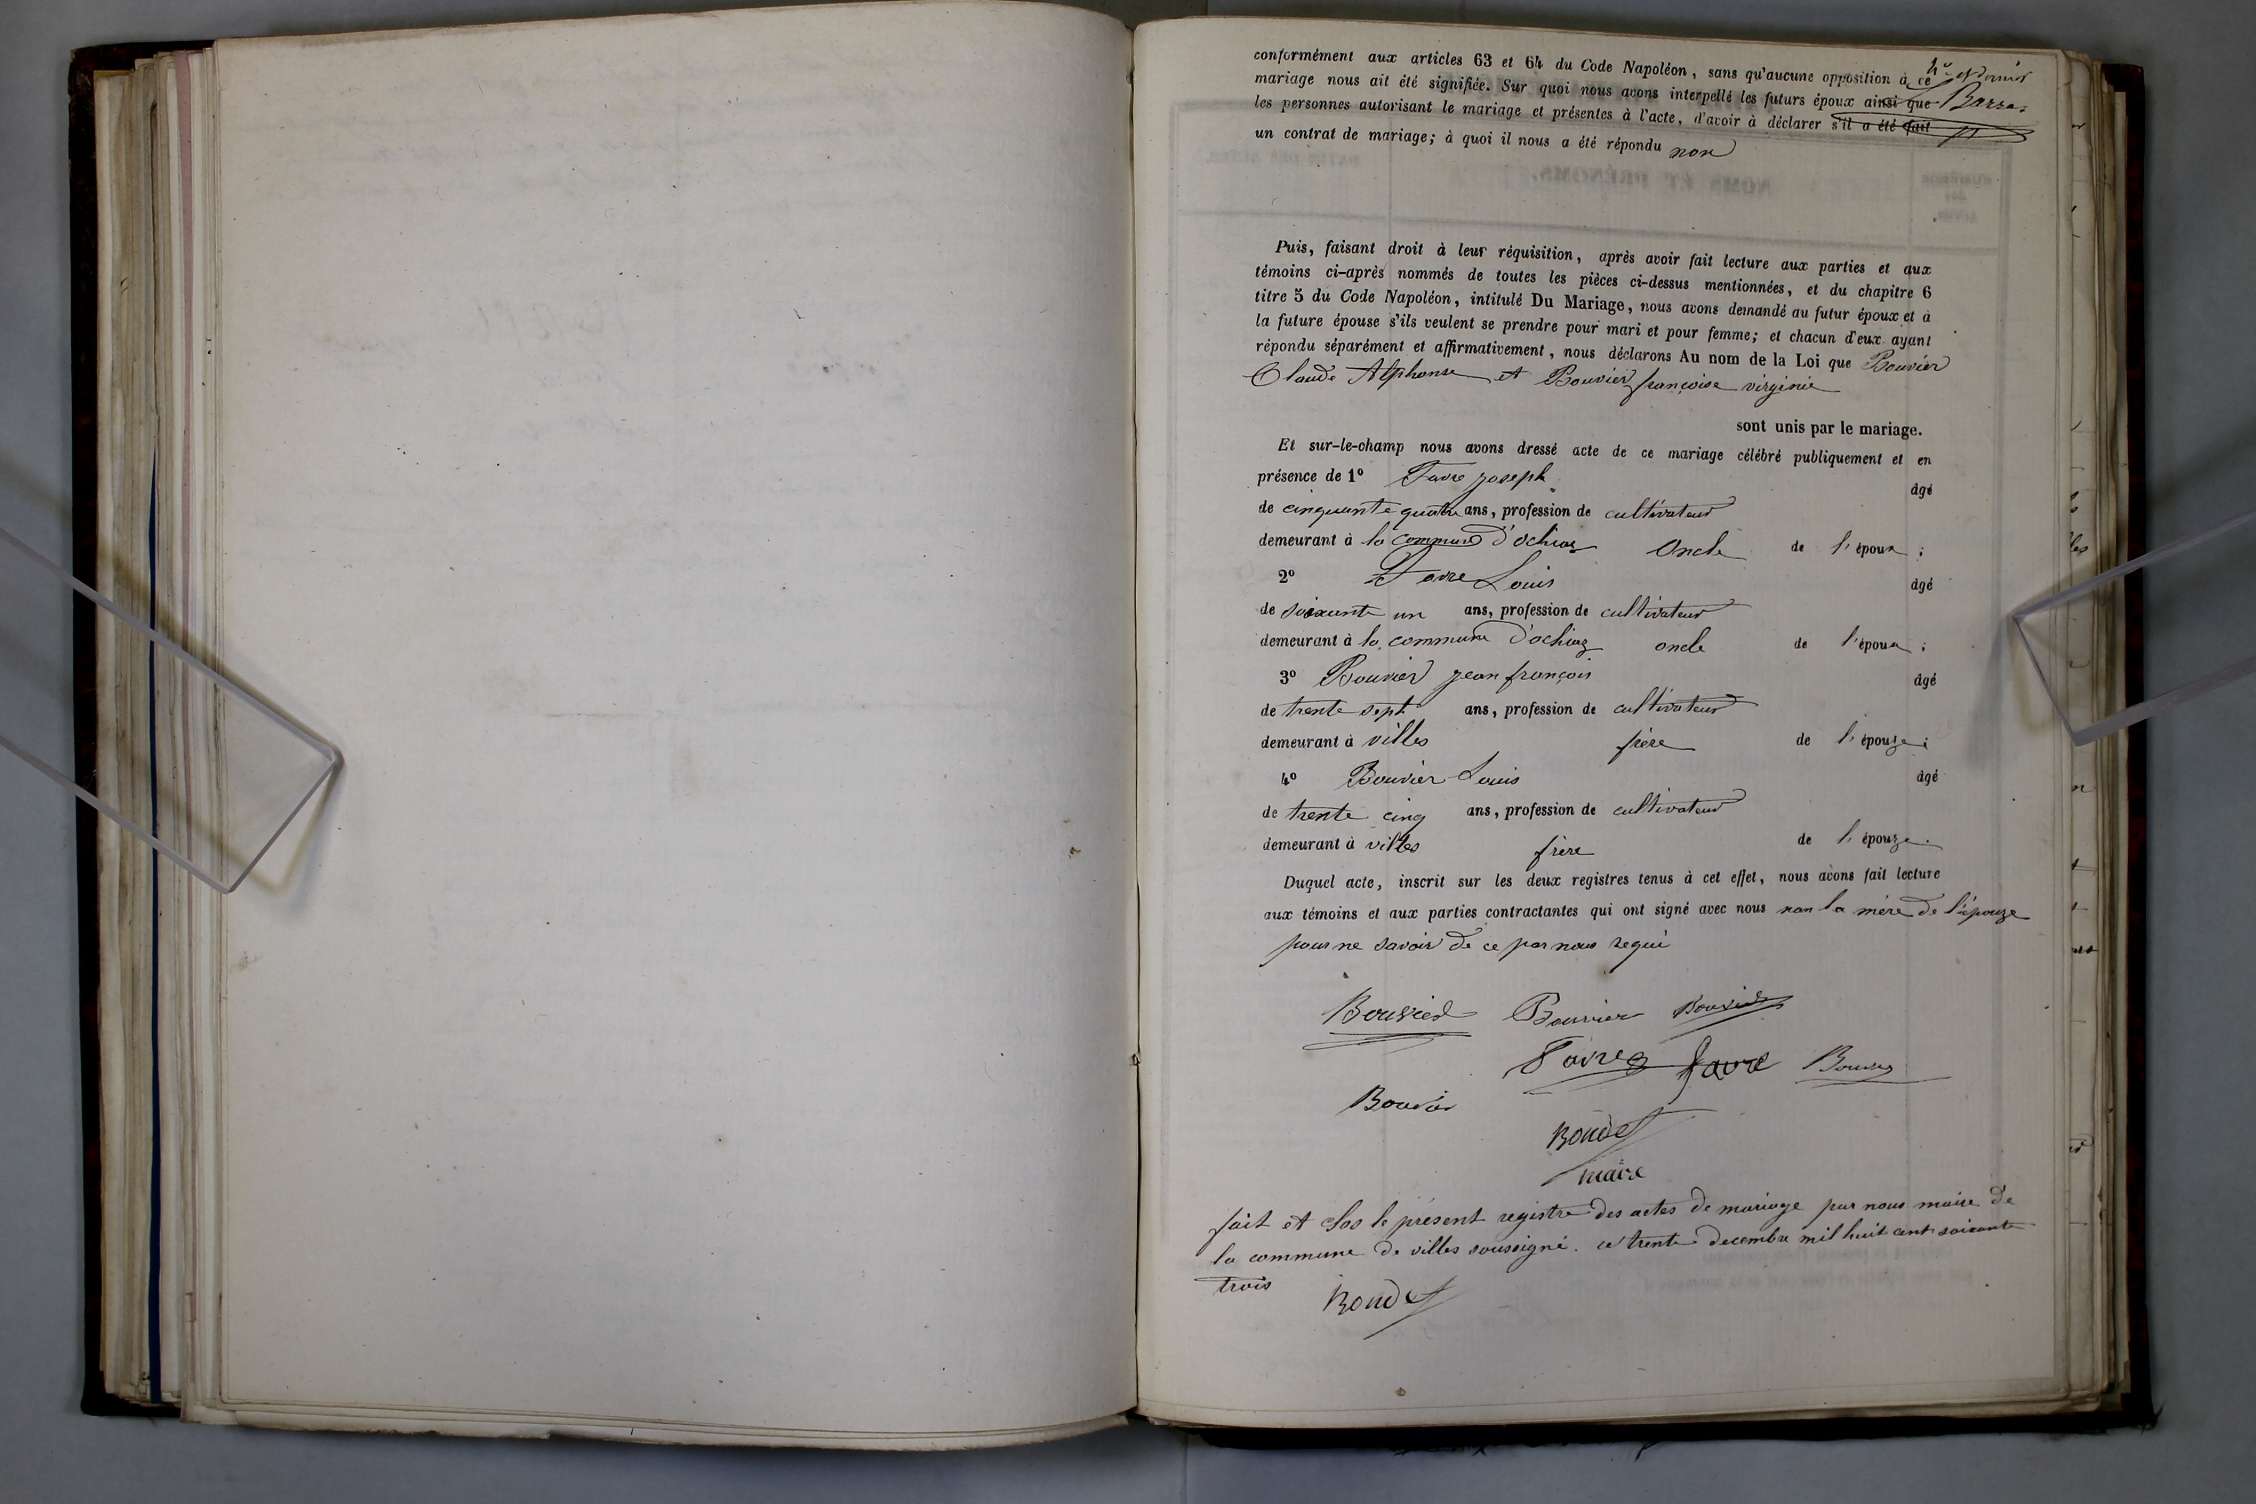 4e et dernier
conformément aux articles 63 et 64 du Code Napoléon, sans qu'aucune opposition à ce
mariage nous ait été signifiée. Sur quoi nous avons interpellé les futurs époux ainsi que
Barras
les personnes autorisant le mariage et présentes à l'acte, d'avoir à déclarer s'il a été fait
un contrat de mariage; à quoi il nous a été répondu non
Puis, faisant droit à leur réquisition, après avoir fait lecture aux parties et aux
témoins ci-après nommés de toutes les pièces ci-dessus mentionnées, et du chapitre 6
titre 5 du Code Napoléon, intitulé Du Mariage, nous avons demandé au futur époux et à
la future épouse s'ils veulent se prendre pour mari et pour femme; et chacun d'eux ayant
répondu séparément et affirmativement, nous déclarons Au nom de la Loi que Bouvier
Claude Alphonse et Bouvier françoise virginie
sont unis par le mariage.
Et sur-le-champ nous avons dressé acte de ce mariage célébré publiquement et en
présence de 1º Favre joseph âgé
de cinquante quatre ans, profession de cultivateur
demeurant à la commune d'ochiaz Oncle de l'époux ;
2º Favre Louis âgé
de soixante un ans, profession de cultivateur
demeurant à la commune d'ochiaz oncle de l'époux ;
3º Bouvier jean françois âgé
de trente sept ans, profession de cultivateur
demeurant à villes frère de l'épouze ;
4º Bouvier Louis âgé
de trente cinq ans, profession de cultivateur
demeurant à villes frère de l'épouze.
Duquel acte, inscrit sur les deux registres tenus à cet effet, nous avons fait lecture
aux témoins et aux parties contractantes qui ont signé avec nous non la mère de l'épouze
pour ne savoir de ce par nous requi
Bouvier Bouvier Bouvier
Favre favre Bouvier
Bouvier
Boudet
maire
fait et clos le présent registre des actes de mariage par nous maire de
la commune de villes soussigné. ce trente decembre mil huit cent soixante
trois
Boudet